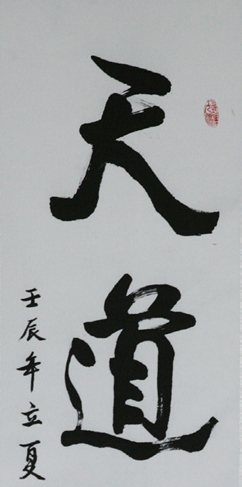 天道
壬辰年立夏